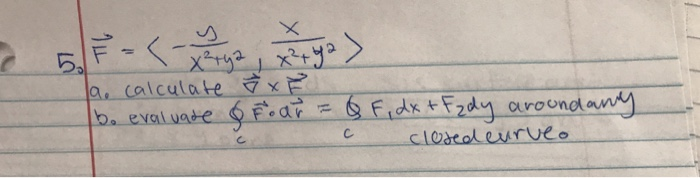 5. F⃗ = < -y/(x²+y²), x/(x²+y²) >
a. calculate ∇⃗ × F⃗
b. evaluate ∮_C F⃗ · dr⃗ = ∮_C F₁dx + F₂dy around any
closed curve.